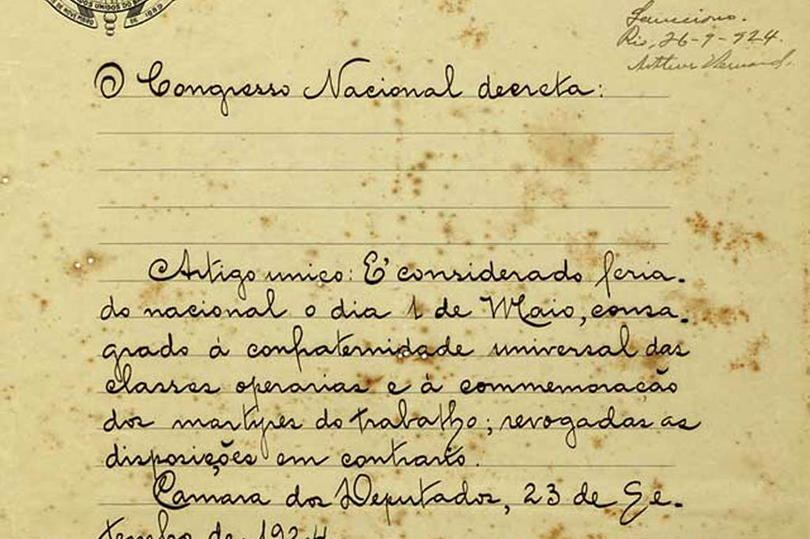 DE NOVEMBRO
DE 1889
Sancciono.
Rio, 26-9-924.
Arthur Bernardes
O Congresso Nacional decreta:
Artigo unico: E' considerado feria-
do nacional o dia 1 de Maio, consa-
grado á confraternidade universal das
classes operarias e á commemoração
dos martyres do trabalho; revogadas as
disposições em contrario.
Camara dos Deputados, 23 de Se-
tembro de 1924